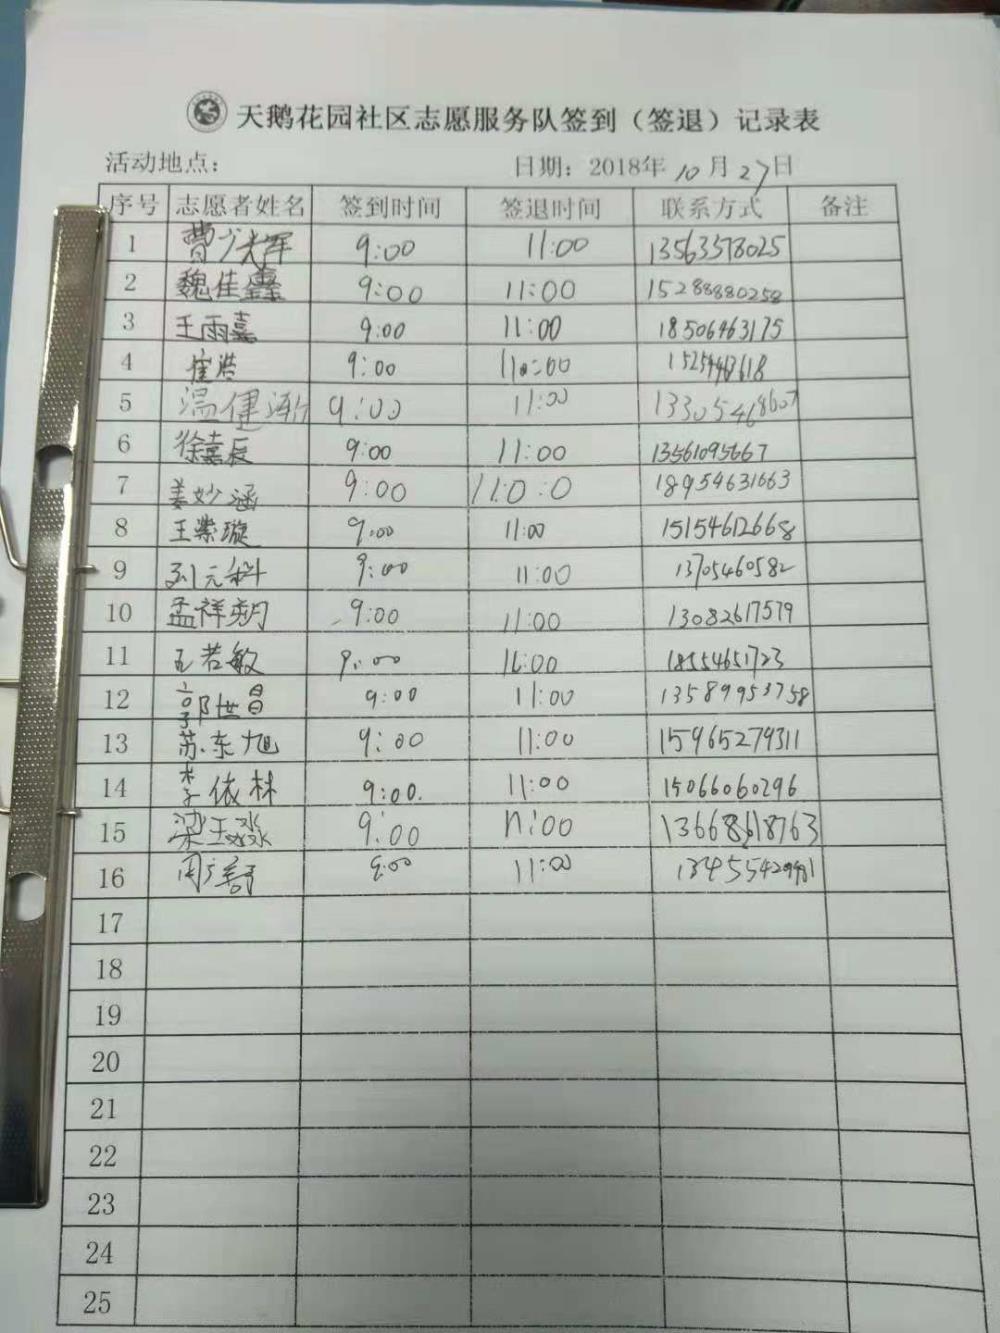 天鹅花园社区志愿服务队签到（签退）记录表
活动地点： 日期：2018年 10 月 27 日
序号 志愿者姓名 签到时间 签退时间 联系方式 备注
1 曹少光军 9:00 11:00 13563578025
2 魏佳鑫 9:00 11:00 15288880258
3 王雨嘉 9:00 11:00 18506463175
4 崔浩 9:00 11:00
5 温健渐 9:00 11:00 13305468607
6 徐嘉辰 9:00 11:00 13561095667
7 姜妙涵 9:00 11:0:0 18954631663
8 王紫璇 9:00 11:00 15154612668
9 刘元科 9:00 11:00 13705460582
10 孟祥玥 9:00 11:00 13082617579
11 王若敏 9:00 11:00 18554651723
12 郭世昌 9:00 11:00 13589953758
13 苏东旭 9:00 11:00 15965279311
14 李依林 9:00 11:00 15066060296
15 梁玉淼 9:00 11:00 13668618763
16 9:00 11:00
17
18
19
20
21
22
23
24
25